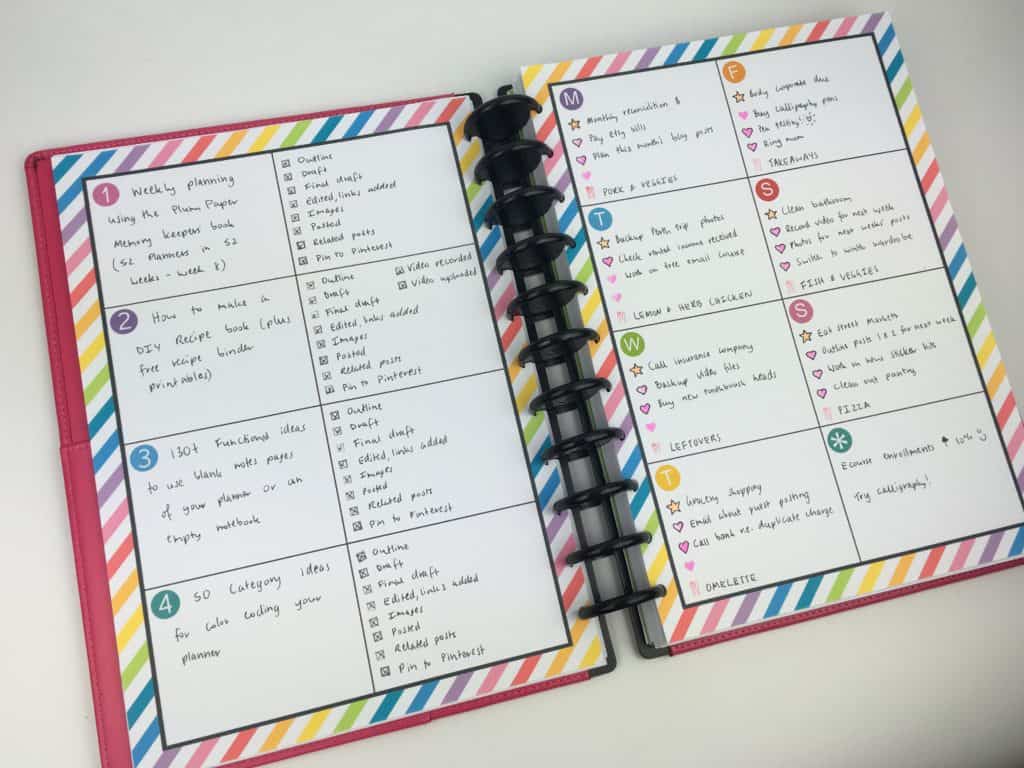 1 Weekly planning
using the Plum Paper
Memory keepers book
(52 Planners in 52
weeks - week 8)
Outline
Draft
Final draft
Edited, links added
Images
Posted
Related posts
Pin to Pinterest
2 How to make a
DIY Recipe book (plus
free recipe binder
printables)
Outline
Draft
Final draft
Edited, links added
Images
Posted
Related posts
Pin to Pinterest
Video recorded
Video uploaded
3 130+ Functional ideas
to use blank notes pages
of your planner or an
empty notebook
Outline
Draft
Final draft
Edited, links added
Images
Posted
Related posts
Pin to Pinterest
4 50 Category ideas
for color coding your
planner
Outline
Draft
Final draft
Edited, links added
Images
Posted
Related posts
Pin to Pinterest
M
Monthly reconciliation &
Pay etsy bills
Plan this month's blog posts
PORK & VEGGIES
T
Backup Perth trip photos
Check rental income received
Work on free email course
LEMON & HERB CHICKEN
W
Call insurance company
Backup video files
Buy new toothbrush heads
LEFTOVERS
T
Grocery shopping
Email about guest posting
Call bank re: duplicate charge
OMELETTE
F
Body corporate due
Buy Calligraphy pens
Pen testing!
Ring mom
TAKEAWAYS
S
Clean bathroom
Record video for next week
Photos for next weeks posts
Switch to winter wardrobe
FISH & VEGGIES
S
Eat street markets
Outline posts 1 & 2 for next week
Work on new sticker kits
Clean out pantry
PIZZA
*
Ecourse enrollments ↑ 10%
Try calligraphy!